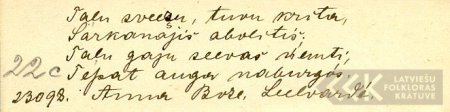 Tāļu svešu, tuvu krita,
Sarkanājis abolītis.
Tāļu gaju seevas ņemti,
22c Tepat auga naburgos.
23098. Anna Bože, Leelvardē.
LATVIEŠU
FOLKLORAS
KRĀTUVE